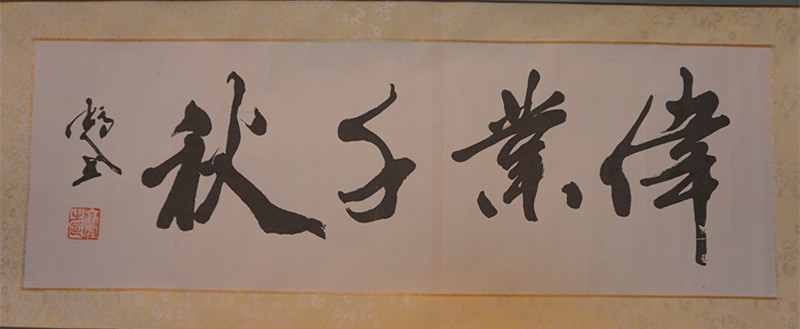 偉業千秋